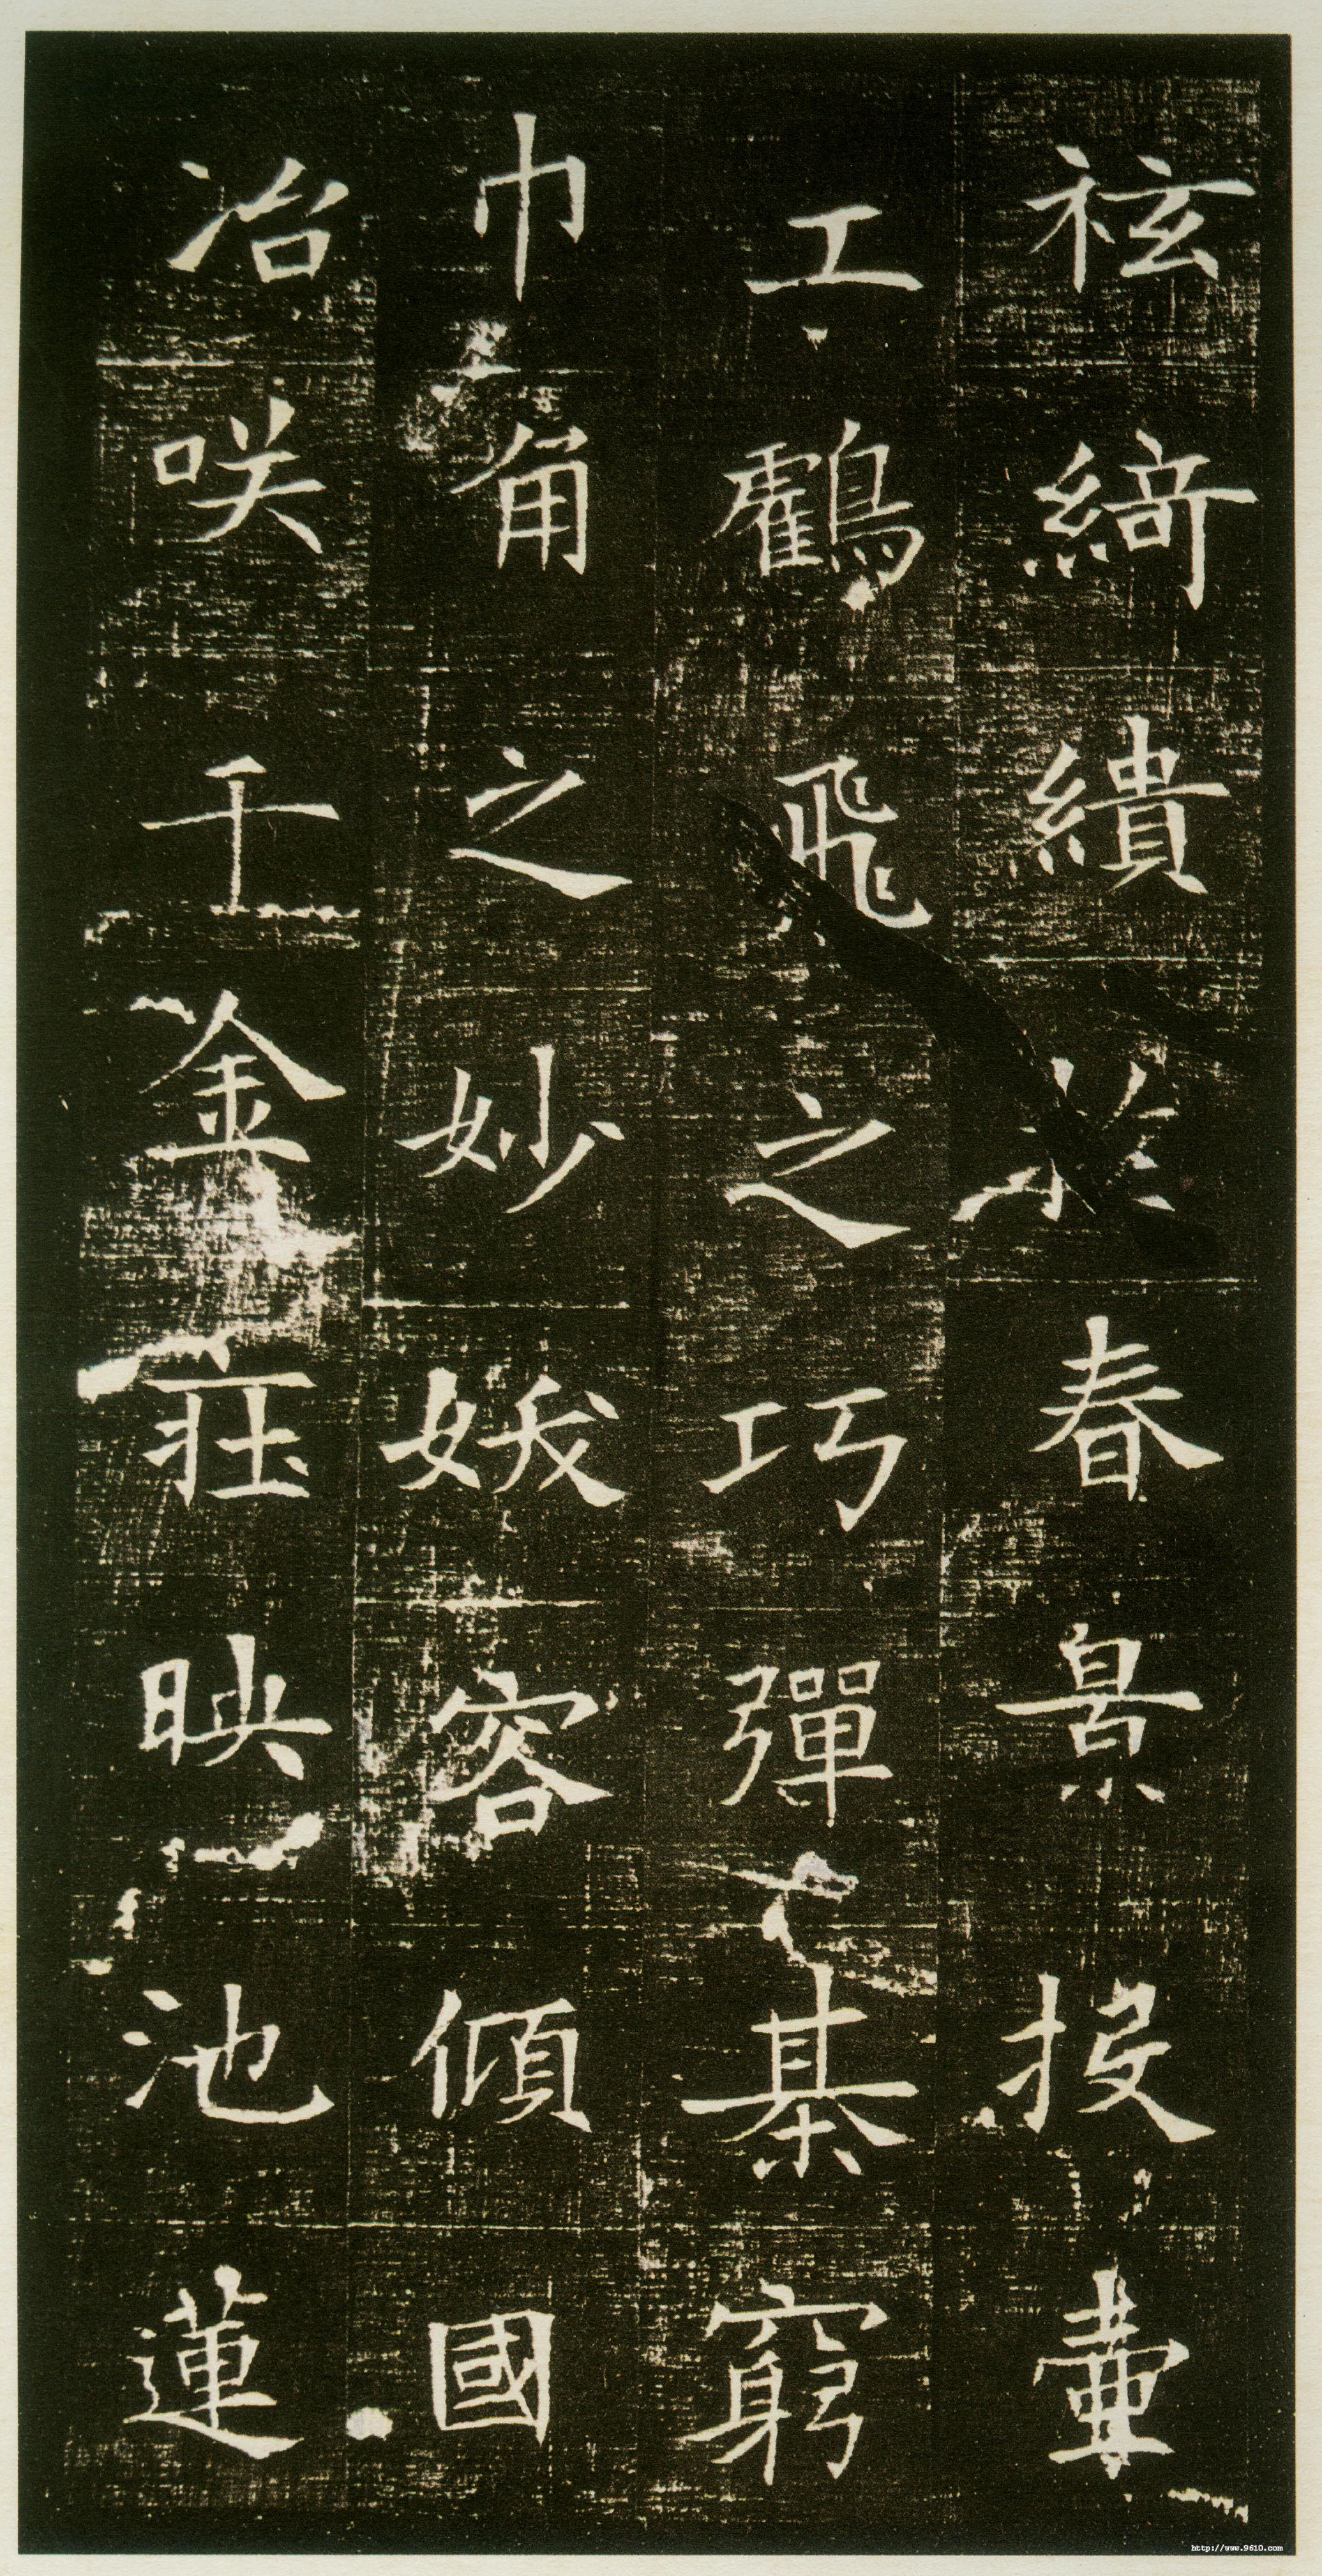 袨綺繢於春景投壺
工鸖飛之巧彈棊窮
巾角之妙妖容傾國
冶咲千金莊映池蓮
http://www.9610.com